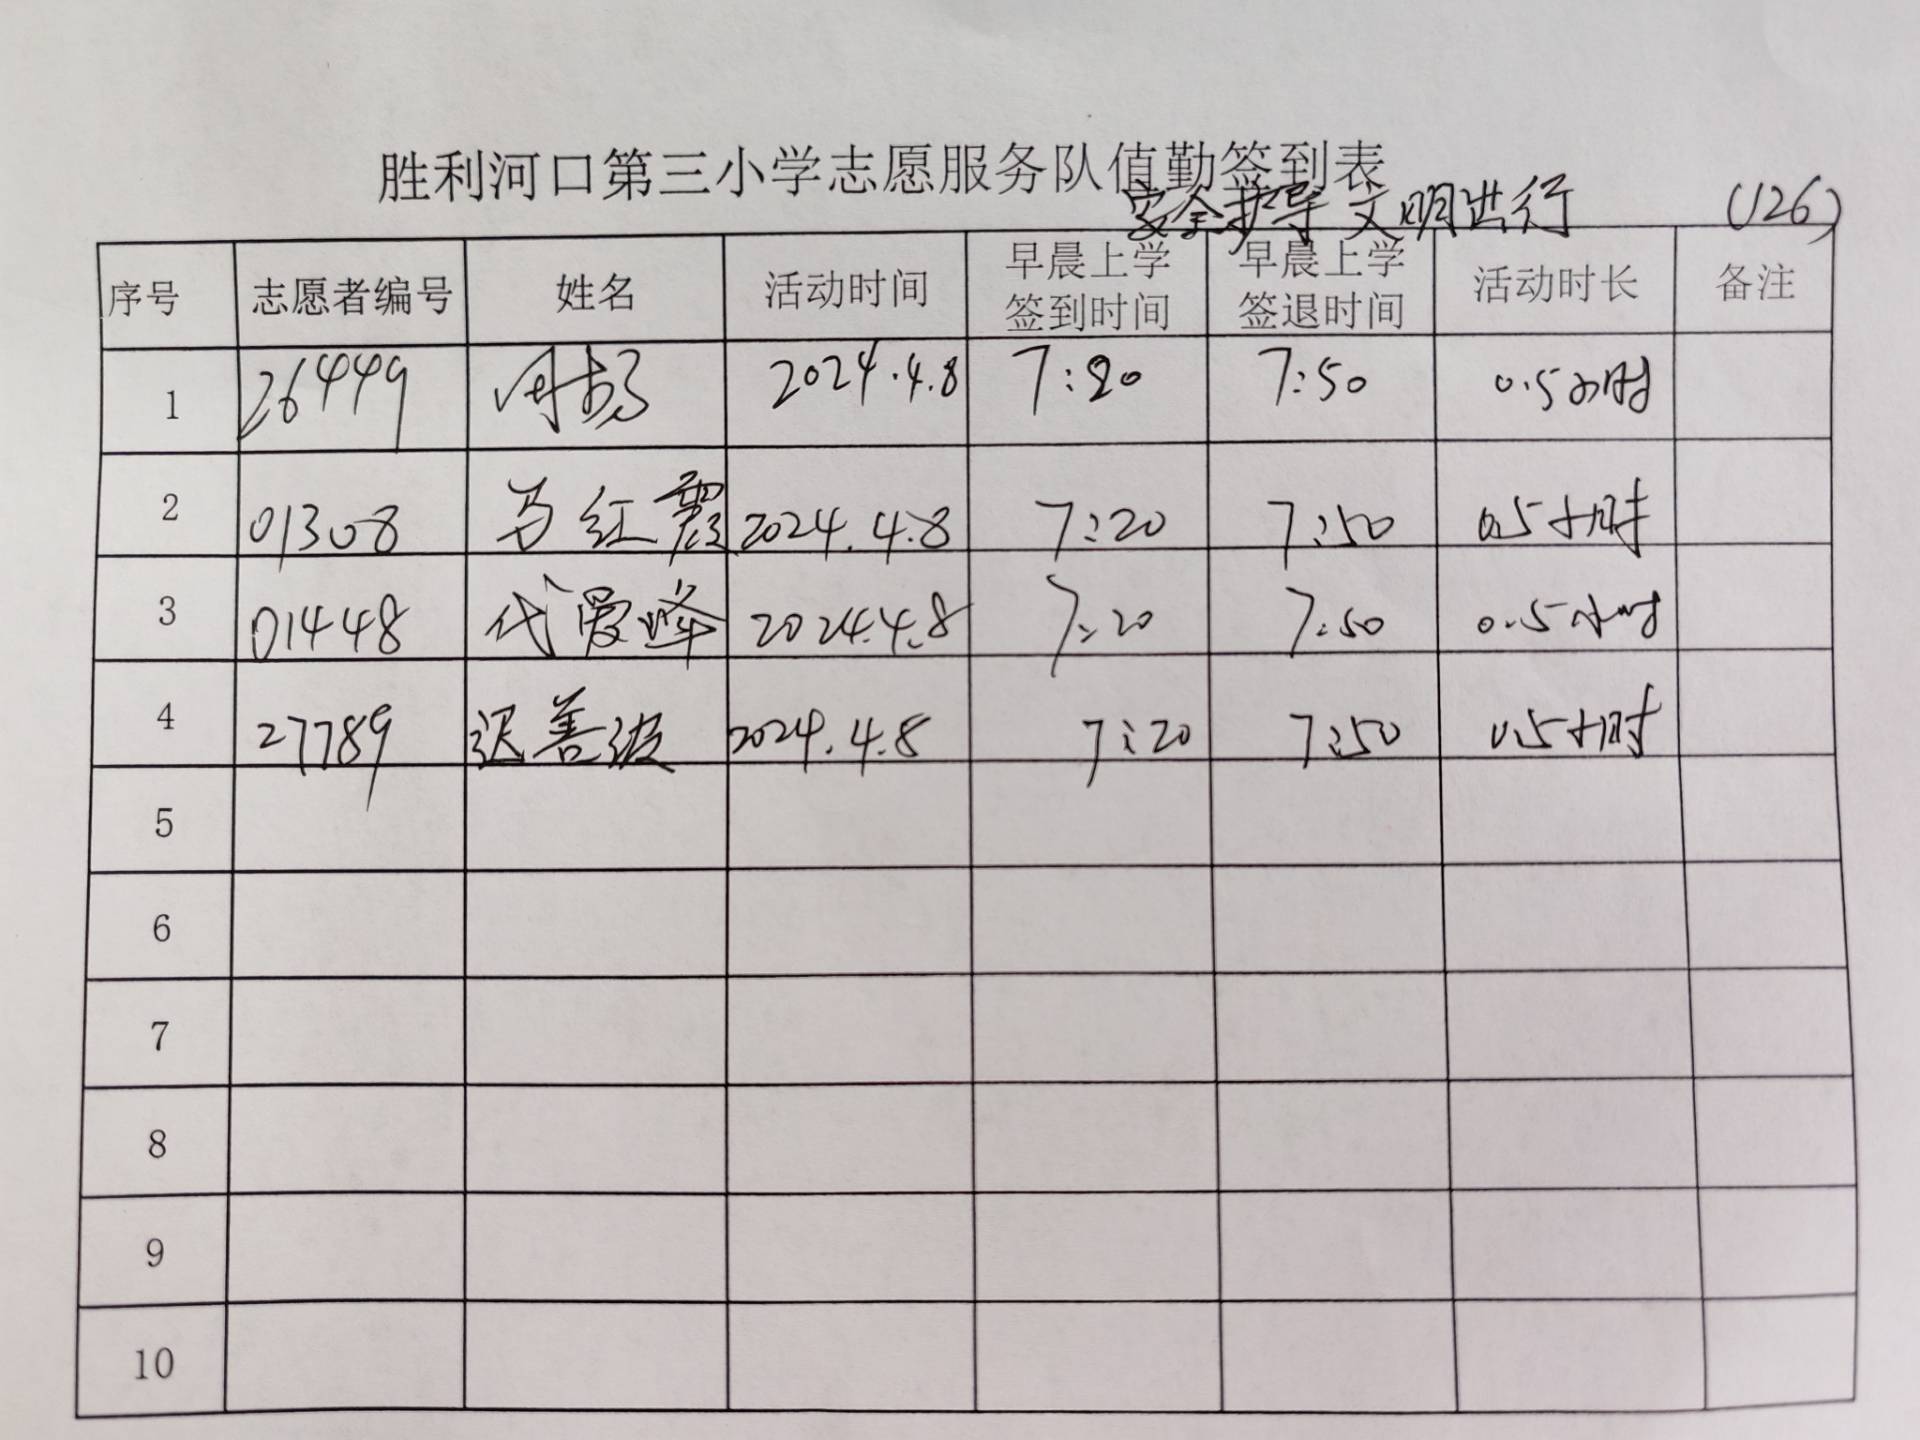 胜利河口第三小学志愿服务队值勤签到表
安全护导 文明出行 (126)
序号 志愿者编号 姓名 活动时间 早晨上学签到时间 早晨上学签退时间 活动时长 备注
1 26449 2024.4.8 7:20 7:50 0.5小时
2 01308 马红霞 2024.4.8 7:20 7:50 0.5小时
3 01448 代爱峰 2024.4.8 7:20 7:50 0.5小时
4 27789 迟善波 2024.4.8 7:20 7:50 0.5小时
5
6
7
8
9
10